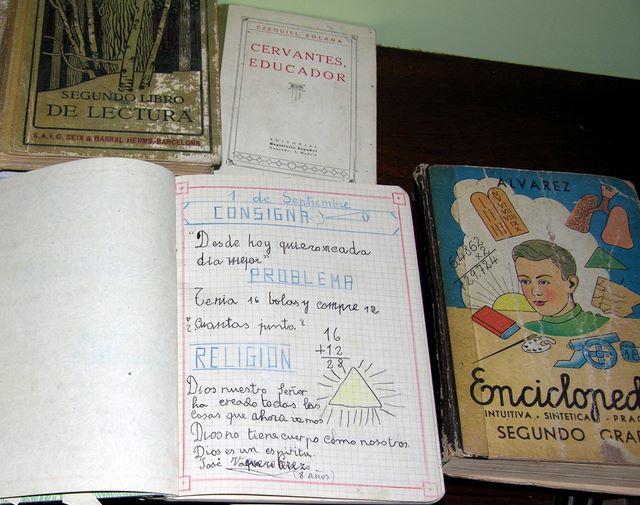 SEGUNDO LIBRO
DE LECTURA
S.A.I.G. SEIX & BARRAL HERMS.-BARCELONA
EZEQUIEL SOLANA
CERVANTES,
EDUCADOR
EDITORIAL
Magisterio Español
1 de Septiembre
CONSIGNA
"Desde hoy quiero ser cada
dia mejor"
PROBLEMA
Tenia 16 bolas y compre 12
¿Cuantas junta?
16
+12
28
RELIGION
Dios nuestro Señor
ha creado todas las
cosas que ahora vemos
Dios no tiene cuerpo como nosotros
Dios es un espiritu
José Vaquero Perez
(8 años)
ALVAREZ
I
II
III
IV
V
VI
VII
VIII
IX
X
14862
x2
29724
Encicloped
INTUITIVA · SINTETICA · PRAC
SEGUNDO GRAD